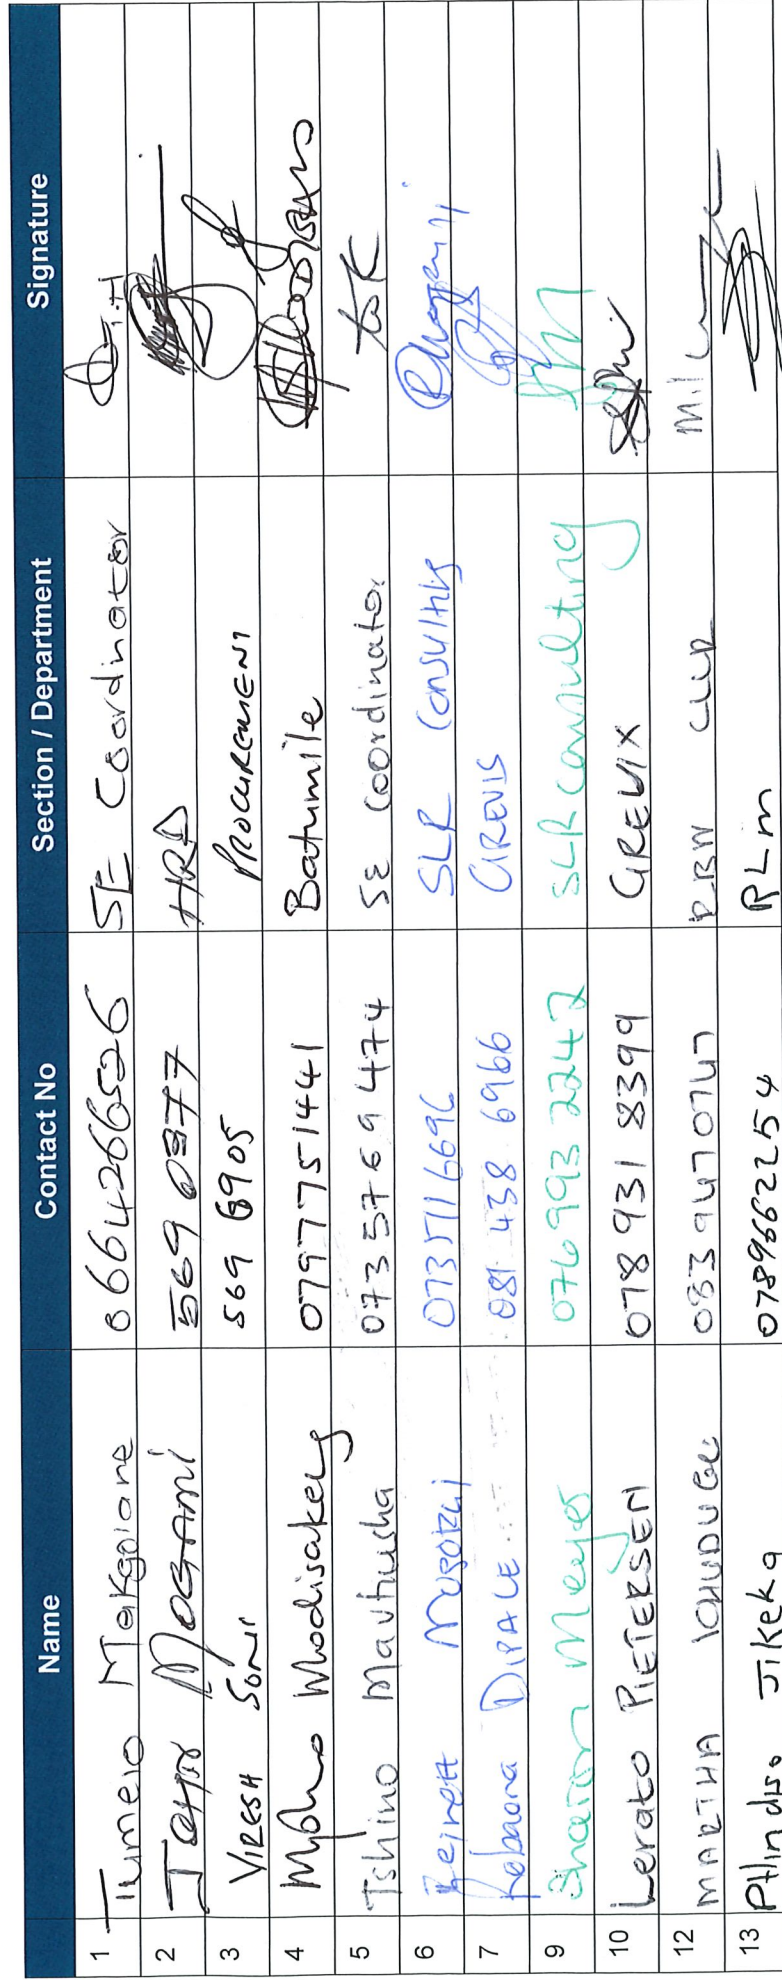 Name Contact No Section / Department Signature
1 Tumelo Makgolane 0664266526 SE Coordinator
2 569 0377 HRD
3 VIRESH SONI 569 6905 PROCUREMENT
4 Mpho Modisakeng 0797751441 Batumile
5 Tshino Mavhusha 073 5769 474 SE Coordinator
6 0735116696 SLR Consulting
7 DIPALE 081 438 6966 GREVIS
9 Sharon Meyer 076993 2242 SLR Consulting
10 Lerato PIETERSEN 078 931 8399 GREVIX
12 MARTHA 083 9470747
13 Jikeka 0789662254 RLM